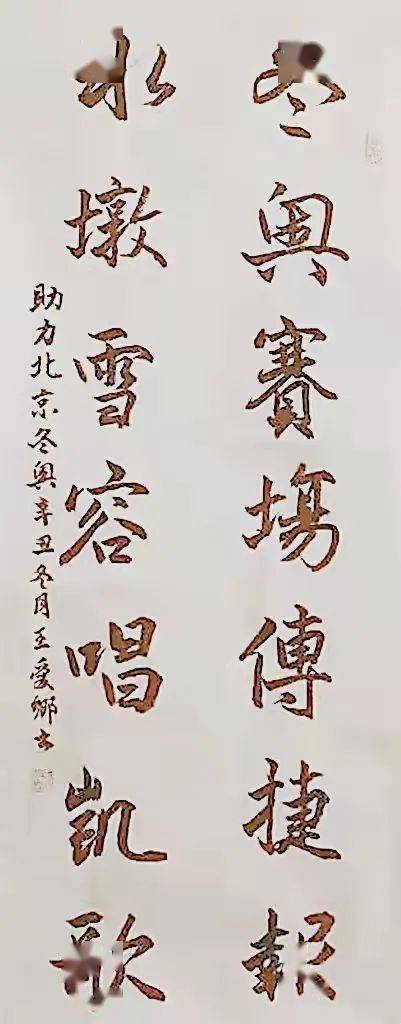 冬奥賽場傳捷報
冰墩雪容唱凱歌
助力北京冬奥辛丑冬月王愛鄉书